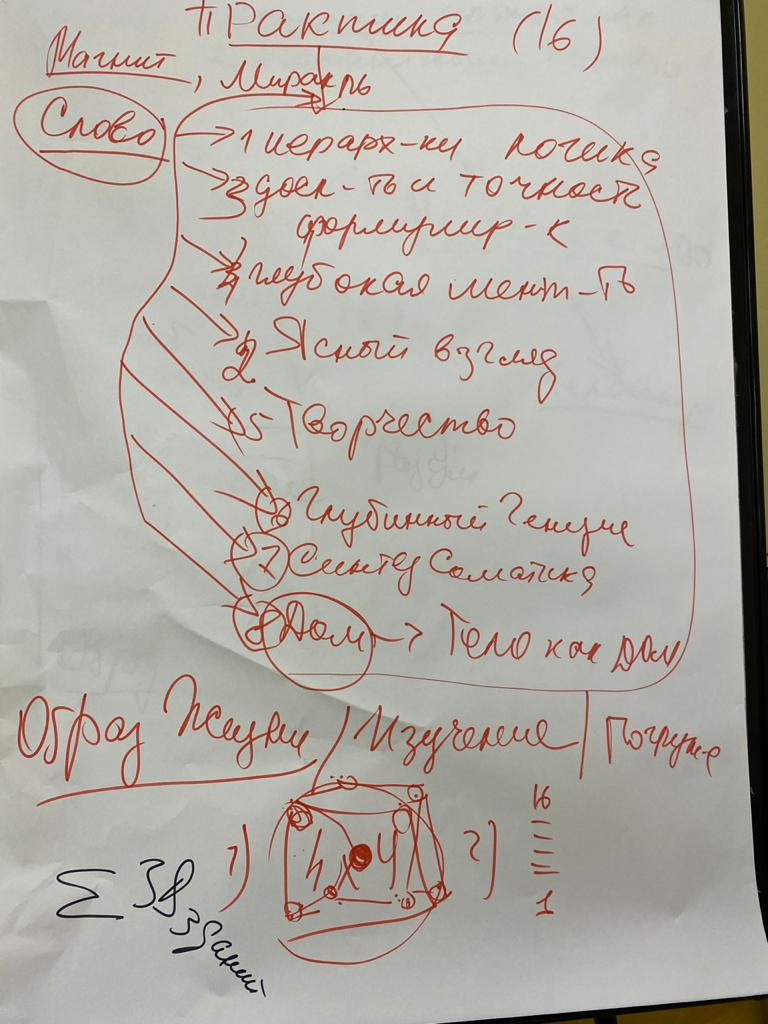 Практика (16)
Магнит, Миракль
Слово
1 иерарх-ки логика
3 досл-ть и точность
формулир-к
4 глубокая мент-ть
2 Ясный взгляд
5 Творчество
6 Глубинный Генезис
7 Синтез Соматика
8 Дом → Тело как Дом
Образ Жизни / Изучение / Погруж-е
1) 4x4 2) 16
1
Σ зданий